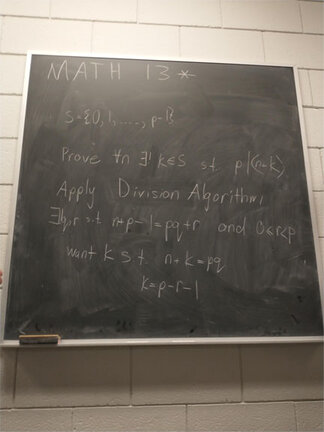 MATH 13*
S={0,1,....,p-1}
Prove ∀n ∃! k∈S s.t. p|(n+k)
Apply Division Algorithm,
∃!q,r s.t. n+p-1=pq+r and 0≤r<p
want k s.t. n+k=pq
k=p-r-1